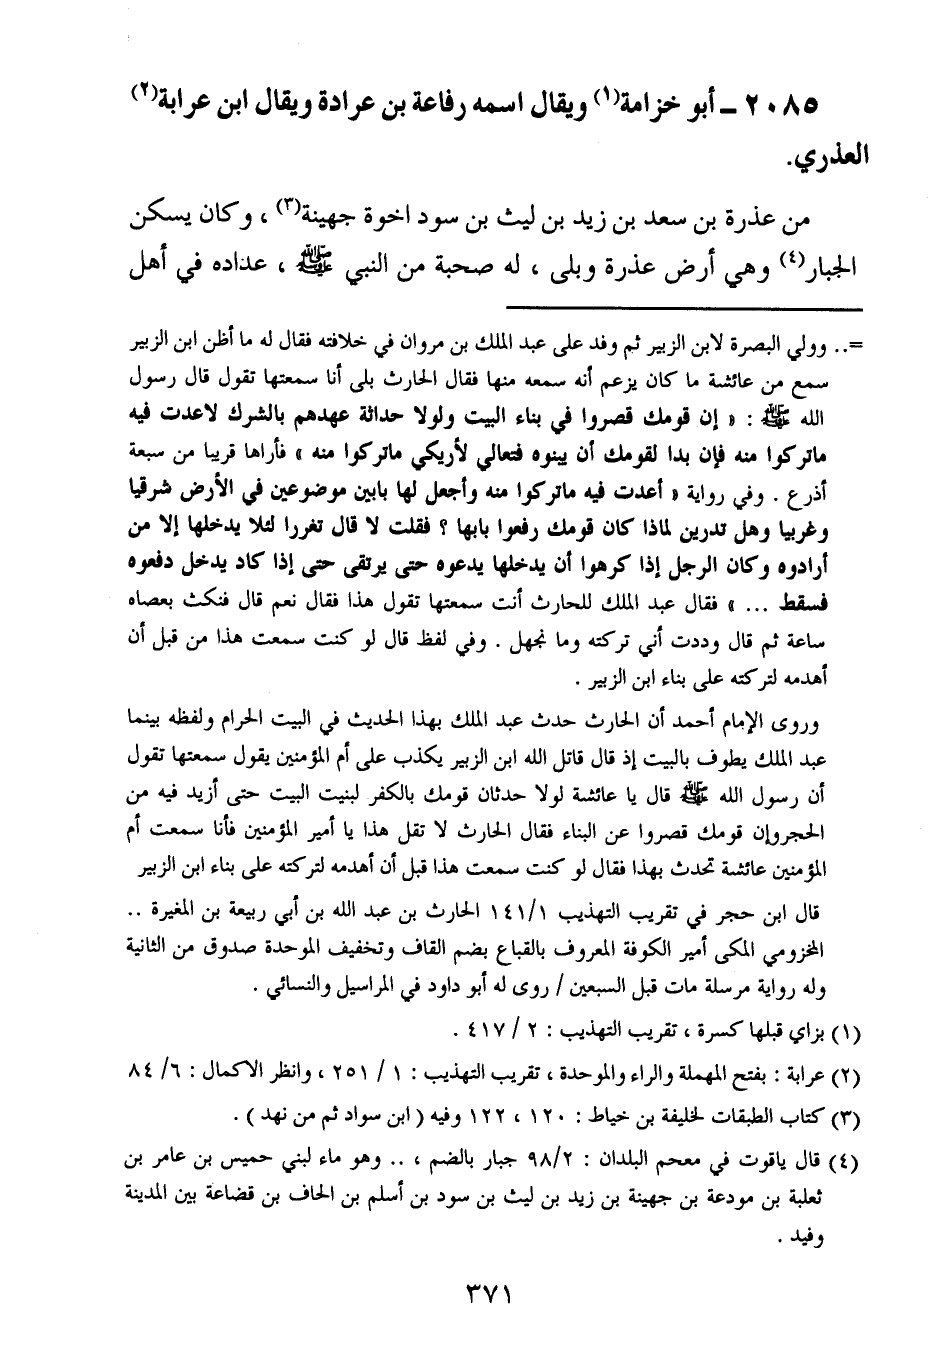 ٢٠٨٥ ـ أبو خزامة(١) ويقال اسمه رفاعة بن عرادة ويقال ابن عرابة(٢)
العذري.
من عذرة بن سعد بن زيد بن ليث بن سود اخوة جهينة(٣) ، وكان يسكن
الجبار(٤) وهي أرض عذرة وبلى ، له صحبة من النبي ﷺ ، عداده في أهل
=.. وولي البصرة لابن الزبير ثم وفد على عبد الملك بن مروان في خلافته فقال له ما أظن ابن الزبير
سمع من عائشة ما كان يزعم أنه سمعه منها فقال الحارث بلى أنا سمعتها تقول قال رسول
الله ﷺ : « إن قومك قصروا في بناء البيت ولولا حداثة عهدهم بالشرك لاعدت فيه
ماتركوا منه فإن بدا لقومك أن يبنوه فتعالي لأريكي ماتركوا منه » فأراها قريبا من سبعة
أذرع . وفي رواية « أعدت فيه ماتركوا منه وأجعل لها بابين موضوعين في الأرض شرقيا
وغربيا وهل تدرين لماذا كان قومك رفعوا بابها ؟ فقلت لا قال تغررا لئلا يدخلها إلا من
أرادوه وكان الرجل إذا كرهوا أن يدخلها يدعوه حتى يرتقى حتى إذا كاد يدخل دفعوه
فسقط ... » فقال عبد الملك للحارث أنت سمعتها تقول هذا فقال نعم قال فنكث بعصاه
ساعة ثم قال وددت أني تركته وما نجهل . وفي لفظ قال لو كنت سمعت هذا من قبل أن
أهدمه لتركته على بناء ابن الزبير .
وروى الإمام أحمد أن الحارث حدث عبد الملك بهذا الحديث في البيت الحرام ولفظه بينما
عبد الملك يطوف بالبيت إذ قال قاتل الله ابن الزبير يكذب على أم المؤمنين يقول سمعتها تقول
أن رسول الله ﷺ قال يا عائشة لولا حدثان قومك بالكفر لبنيت البيت حتى أزيد فيه من
الحجروإن قومك قصروا عن البناء فقال الحارث لا تقل هذا يا أمير المؤمنين فأنا سمعت أم
المؤمنين عائشة تحدث بهذا فقال لو كنت سمعت هذا قبل أن أهدمه لتركته على بناء ابن الزبير
قال ابن حجر في تقريب التهذيب ١٤١/١ الحارث بن عبد الله بن أبي ربيعة بن المغيرة ..
المخزومي المكى أمير الكوفة المعروف بالقباع بضم القاف وتخفيف الموحدة صدوق من الثانية
وله رواية مرسلة مات قبل السبعين / روى له أبو داود في المراسيل والنسائي .
(١) بزاي قبلها كسرة ، تقريب التهذيب : ٢ / ٤١٧ .
(٢) عرابة : بفتح المهملة والراء والموحدة ، تقريب التهذيب : ١ / ٢٥١ ، وانظر الاكمال : ٦/ ٨٤
(٣) كتاب الطبقات لخليفة بن خياط : ١٢٠ ، ١٢٢ وفيه ( ابن سواد ثم من نهد ) .
(٤) قال ياقوت في معجم البلدان : ٩٨/٢ جبار بالضم ، .. وهو ماء لبني حميس بن عامر بن
ثعلبة بن مودعة بن جهينة بن زيد بن ليث بن سود بن أسلم بن الحاف بن قضاعة بين المدينة
وفيد .
٣٧١